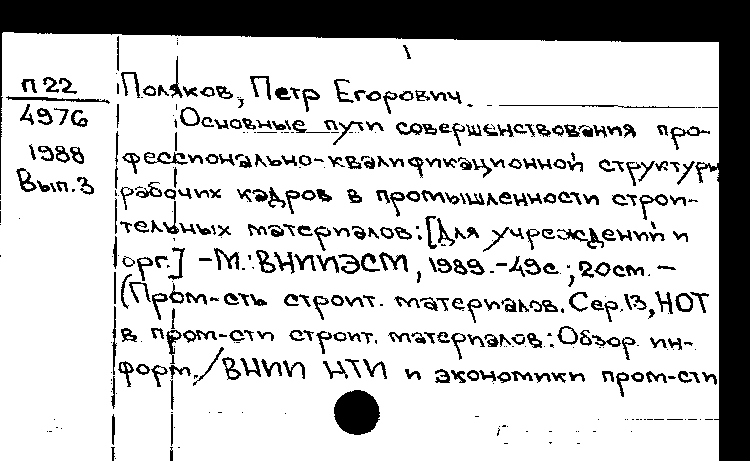 П22 Поляков, Петр Егорович.
4976 Основные пути совершенствования про-
1988 фессионально-квалификационной структуры
Вып.3 рабочих кадров в промышленности строи-
тельных материалов: [Для учреждений и
орг.] - М.: ВНИИЭСМ, 1989. - 49с.; 20см. -
(Пром-сть строит. материалов. Сер.13, НОТ
в пром-сти строит. материалов: Обзор. ин-
форм. / ВНИИ НТИ и экономики пром-сти